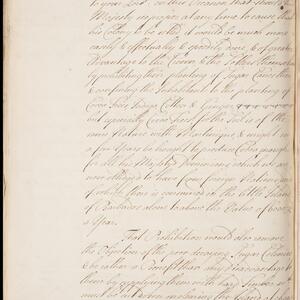 to your Lord.ps on this Occasion that should his
Majesty incorporate at any time to cause that
this Colony to be settled it would be much more
easily & effectually & speedily done, & of greater
advantage to the Crown & the Settlers themselves
by prohibiting their planting of Sugar Canes there
& confining the Inhabitants to the planting of
Cocoa Trees Indigo Cotton & Ginger
but especially Cocoa Trees for the Soil is of the
same Nature with Martinique & might in
a few Years be bro.t to produce Cocoa enough
for all his Majestys Dominions which we are
now obliged to have from foreign Nations and
of which there is consumed in the little Island
of Barbados alone to above the Value of
a Year.
That Prohibition would also remove
the Objection of the poor decaying Sugar Colonies
& be rather a Benefit than any Disadvantage to
them by supplying them with
must be